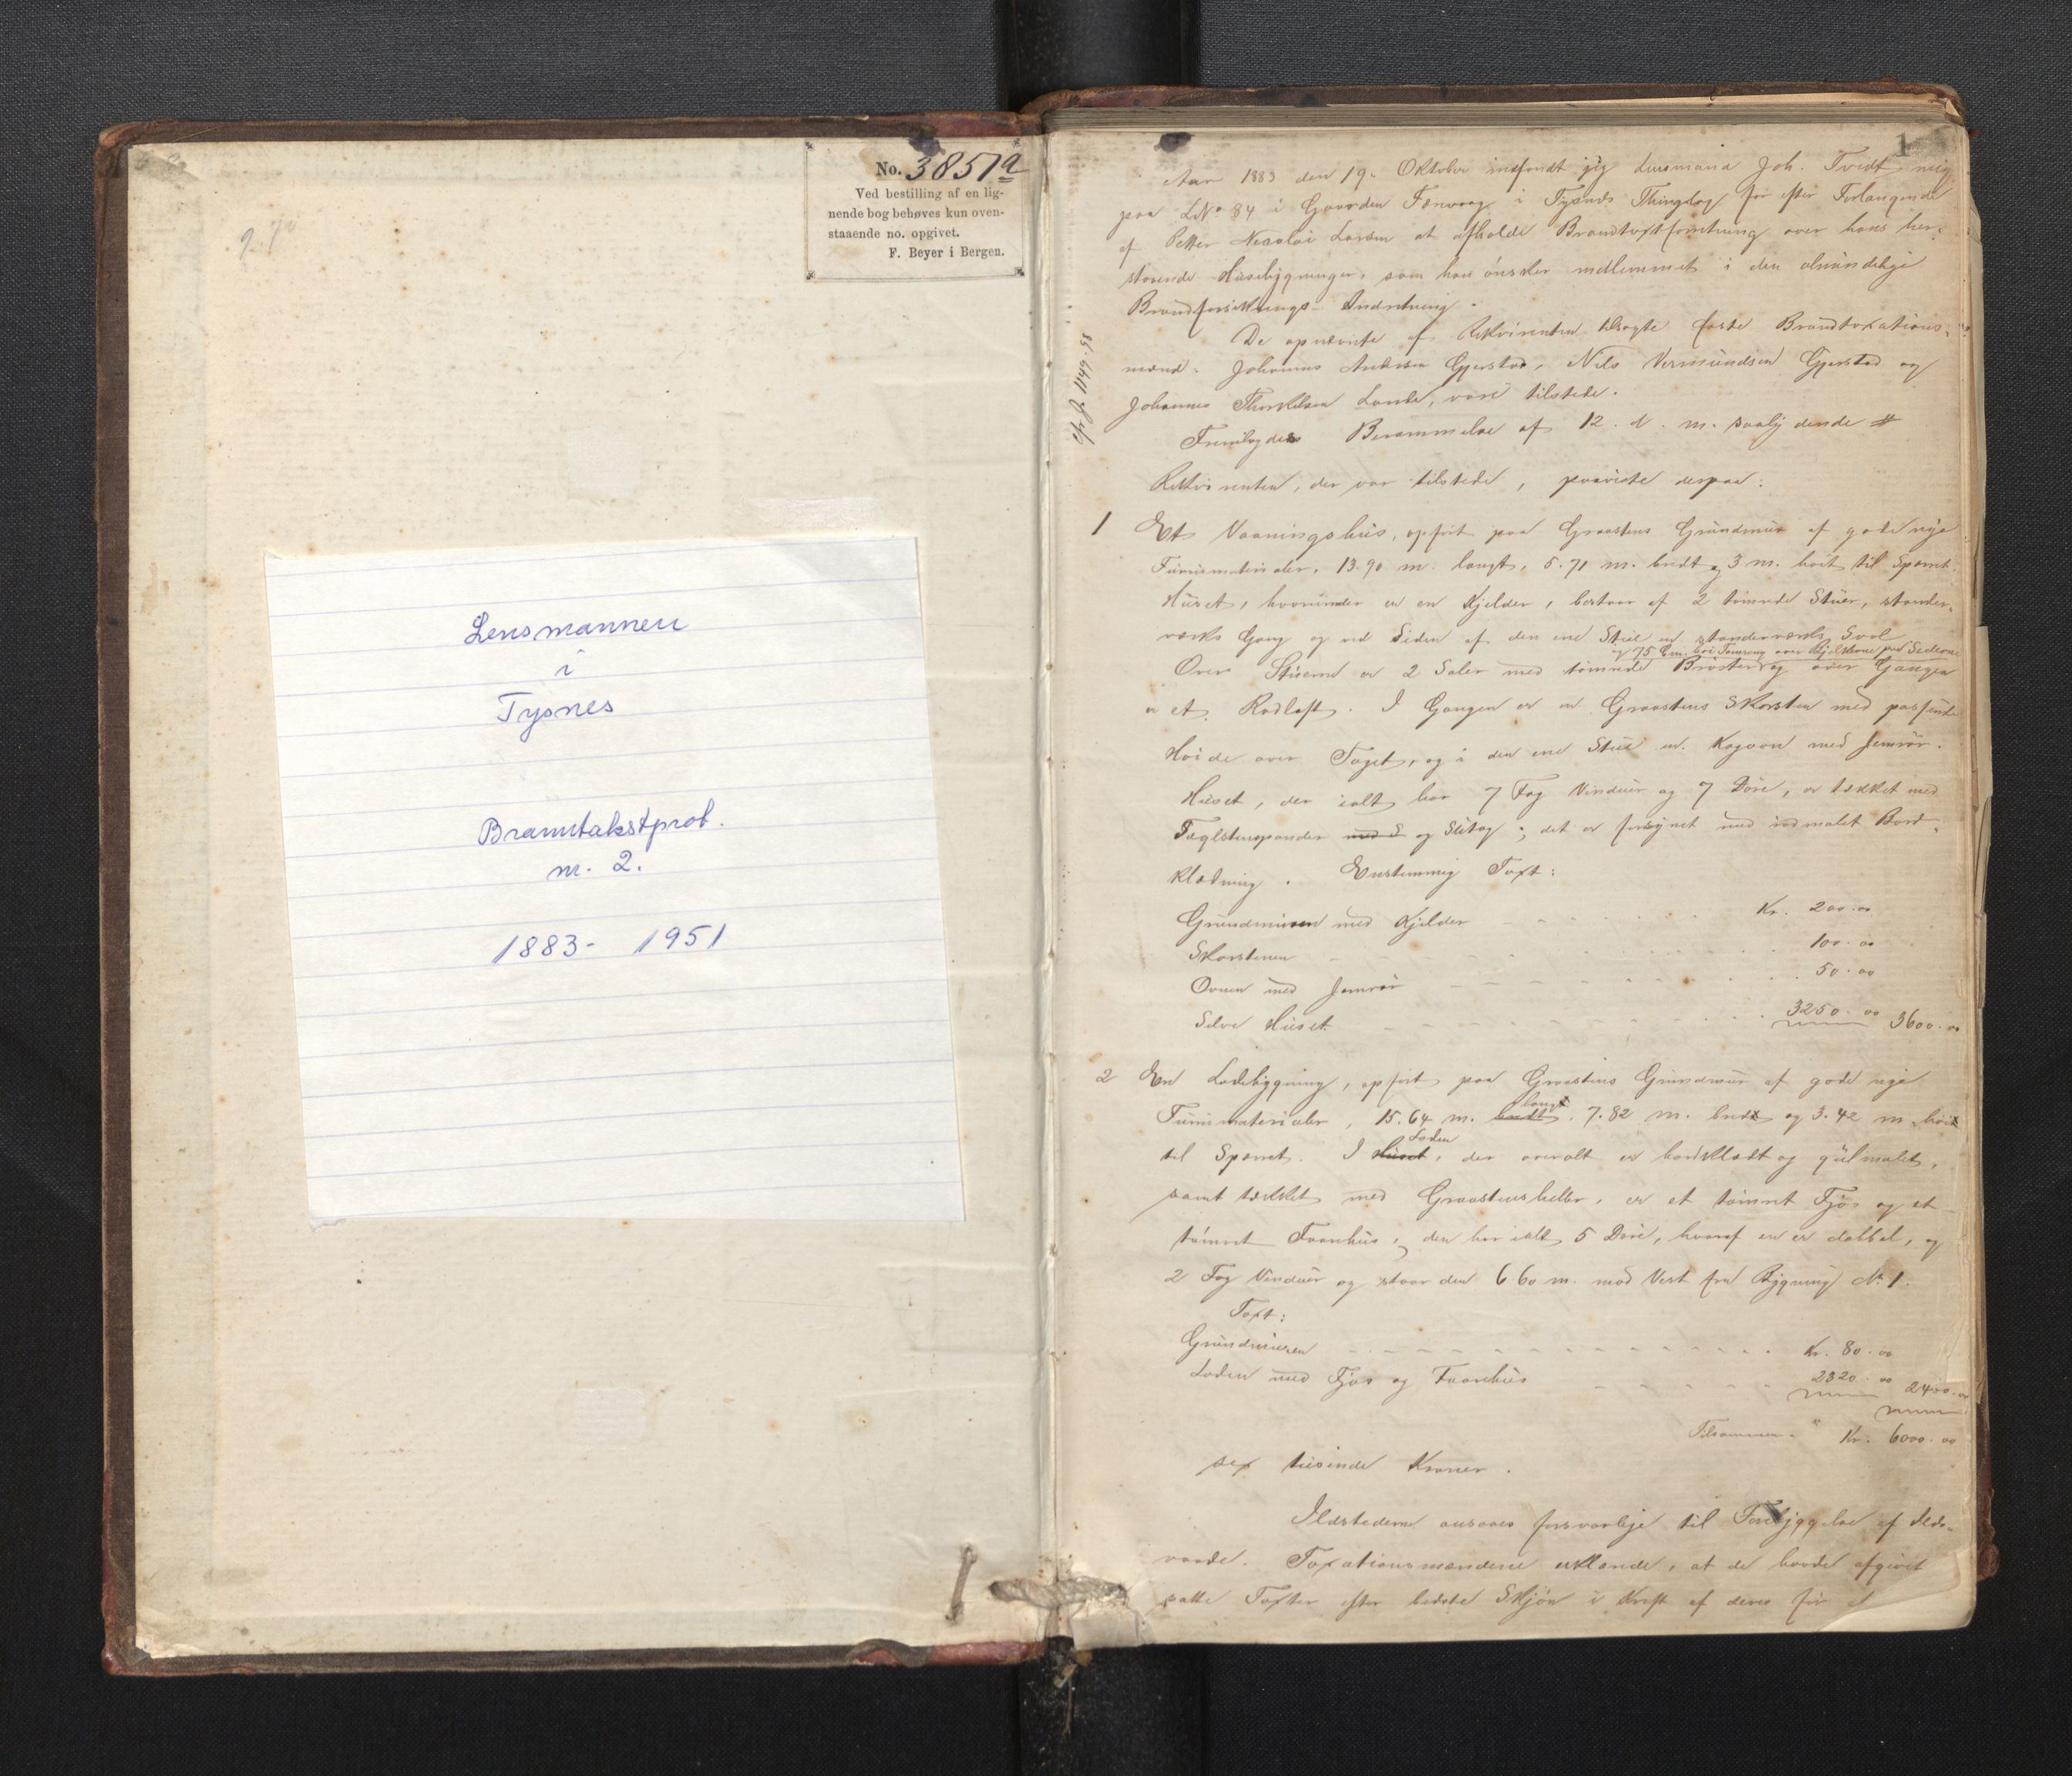 No. 3851a
Ved bestilling af en lig-
nende bog behøves kun oven-
staaende no. opgivet.
F. Beyer i Bergen.
Lensmannen
i
Tysnes
Branntakstprot.
nr. 2.
1883- 1951
1
Aar 1883 den 19. Oktober indfandt jeg Lensmand Joh. Tvedt mig
paa LNo 84 i Gaarden Tenvaag i Tysnes Thinglag for efter Forlangende
af Petter Nicolai Larsen at afholde Brandtaxtforretning over hans her-
staaende Husebygninger, som han ønsker indlemmet i den almindelige
Brandforsikrings-Indretning.
De opnævnte af Rekvirenten tilsagte faste Brandtaxations-
mænd: Johannes Gjerstad, Nils Vermundsen Gjerstad og
Johannes Thorkelsen Lande, vare tilstede.
Fremlagdes Berammelse af 12. d. m. saalydende #
Rekvirenten, der var tilstede, paaviste derpaa:
1 Et Vaaningshus, opført paa Graastens Grundmur af gode nye
Furumaterialer, 13.90 m. langt, 5.71 m. bredt og 3 m. høit til Sparret.
Huset, hvorunder er en Kjelder, bestaar af 2 tømrede Stuer, stander-
værks Gang og ved Siden af den ene Stue en standerværks Sval
og 75 Cm. høi Tømring over Bjelkerne paa Siderne
Over Stuerne er 2 Saler med tømrede Brøster og over Gangen
er et Rodloft. I Gangen er en Graastens Skorsten med passende
Høide over Taget, og i den ene Stue en Kogeovn med Jernrør.
Huset, der ialt har 7 Fag Vinduer og 7 Døre, er tækket med
Tæglstenspander og Sutag; det er forsynet med rødmalet Bord-
klædning. Enstemmig Taxt:
Grundmuren med Kjelder Kr. 200.00
Skorstenen 100.00
Ovnen med Jernrør 50.00
Selve Huset 3250.00 3600.00
2 En Ladebygning, opført paa Graastens Grundmur af gode nye
Furumaterialer, 15.64 m. bredt langt, 7.82 m. bredt og 3.42 m. høit
til Sparret. I Huset Laden, der overalt er bordklædt og gulmalet,
samt tækket med Graastensheller, er et tømret Fjøs og et
tømret Faarehus; den har ialt 5 Døre, hvoraf en er dobbel, og
2 Fag Vinduer og staar den 6.60 m. mod Vest fra Bygning No 1.
Taxt:
Grundmuren Kr. 80.00
Laden med Fjøs og Faarehus 2320.00 2400.00
Tilsammen Kr. 6000.00
sex tusinde Kroner.
Ildstederne ansaaes forsvarlige til Forebyggelse af Ilds-
vaade. Taxationsmændene erklærede, at de havde afgivet
satte Taxter efter bedste Skjøn i Kraft af deres før